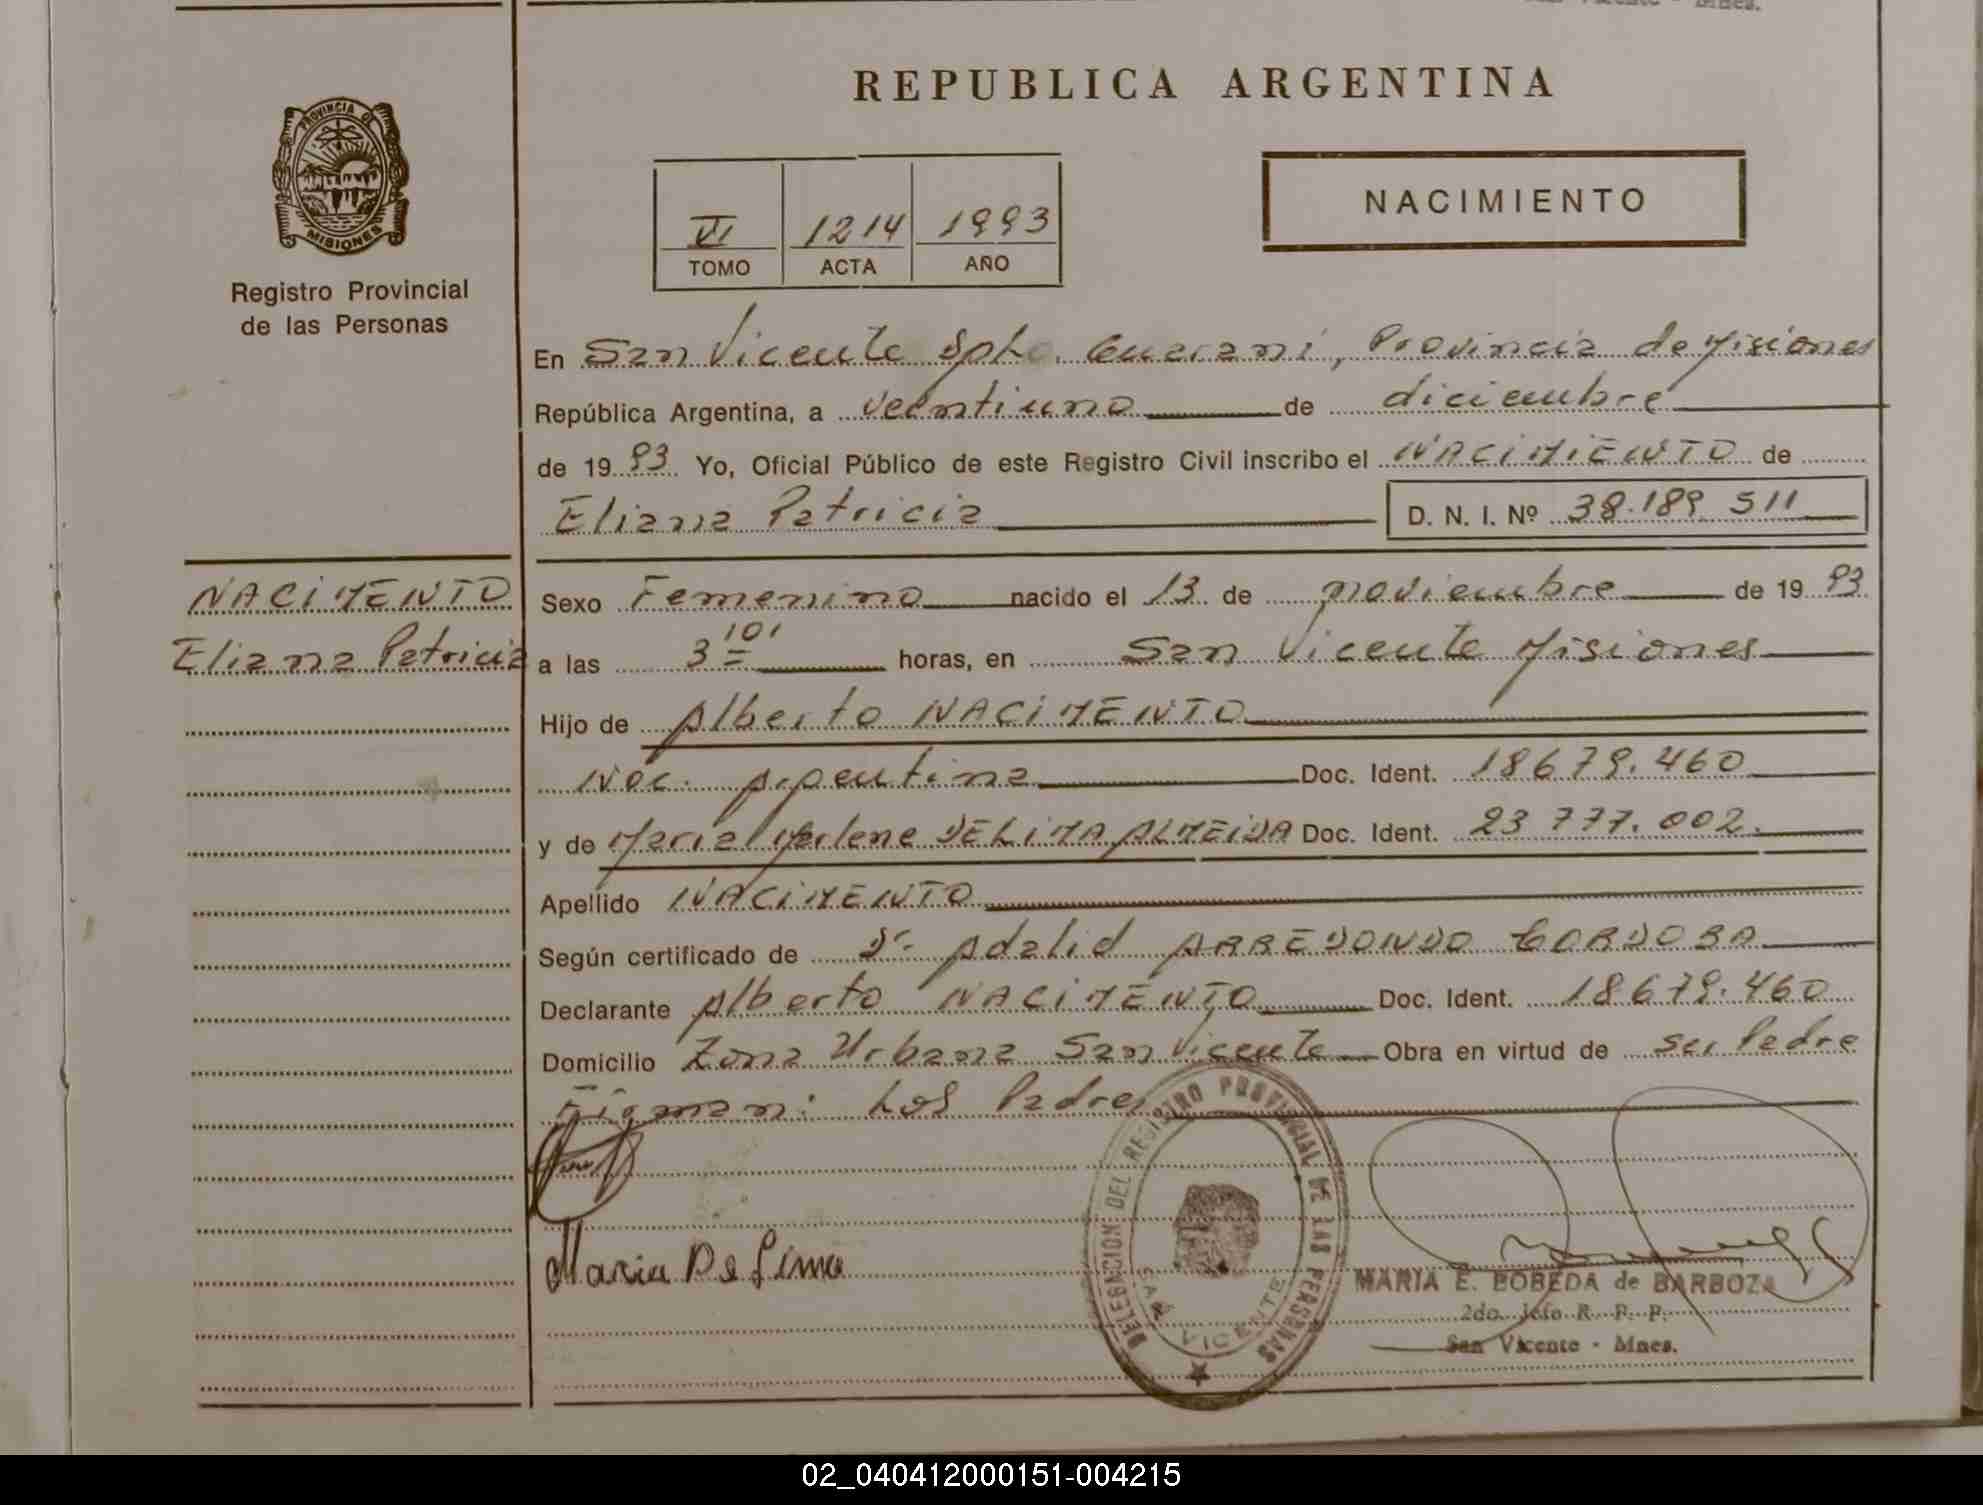 San Vicente - Mnes.
REPUBLICA ARGENTINA
PROVINCIA DE
MISIONES
Registro Provincial
de las Personas
VI 1214 1993
TOMO ACTA AÑO
NACIMIENTO
En San Vicente Dpto. Guarani, Provincia de Misiones
República Argentina, a veintiuno de diciembre
de 1993 Yo, Oficial Público de este Registro Civil inscribo el NACIMIENTO de
Eliana Patricia D. N. I. Nº 38.189 511
NACIMENTO
Eliana Patricia
Sexo Femenino nacido el 13 de noviembre de 1993
a las 3 10' horas, en San Vicente Misiones
Hijo de Alberto NACIMENTO
Nac. Argentina Doc. Ident. 18679.460
y de Maria Marlene DE LIMA ALMEIDA Doc. Ident. 23 777.002.
Apellido NACIMENTO
Según certificado de Dr. Adalid ARREDONDO CORDOBA
Declarante Alberto NACIMENTO Doc. Ident. 18679.460
Domicilio Zona Urbana San Vicente Obra en virtud de ser Padre
Firman: Los Padres
Maria De Lima
DELEGACION DEL REGISTRO PROVINCIAL DE LAS PERSONAS
SAN VICENTE
MARIA E. BOBEDA de BARBOZA
2do. Jefe R. P. P.
San Vicente - Mnes.
02_040412000151-004215